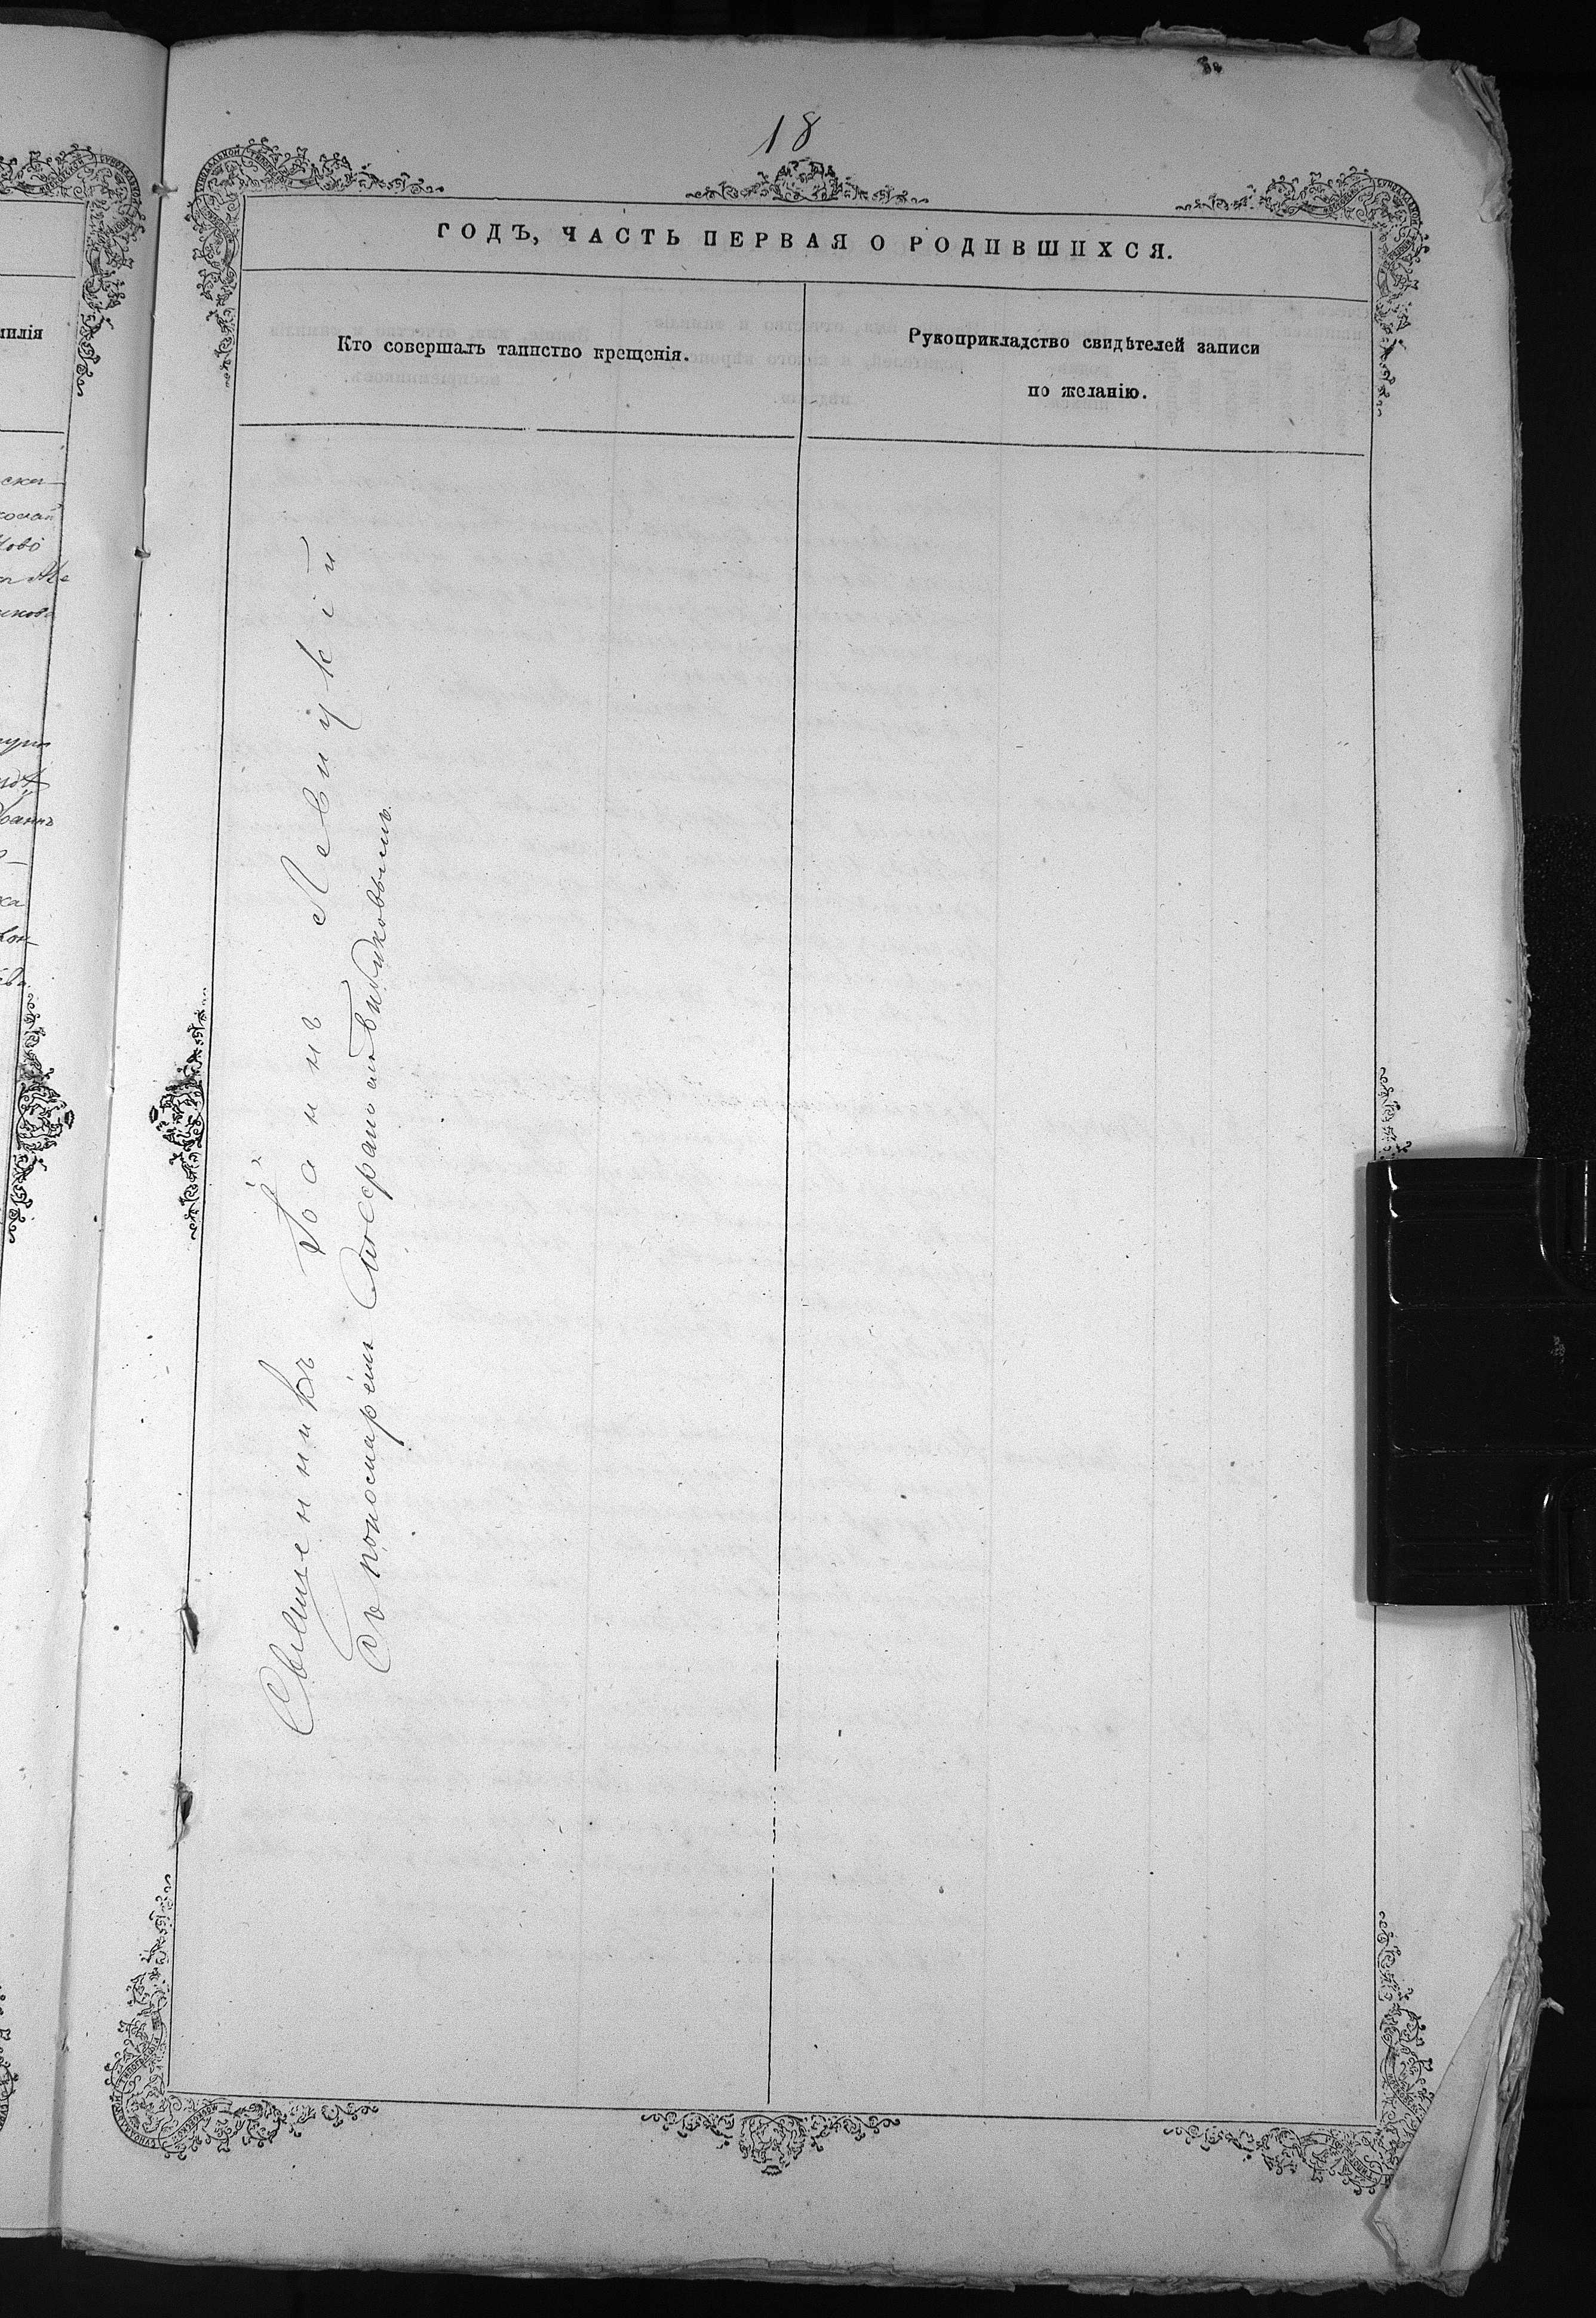 18
ГОДЪ, ЧАСТЬ ПЕРВАЯ О РОДИВШИХСЯ.
Кто совершалъ таинство крещенія.
Рукоприкладство свидѣтелей записи
по желанію.
Священникъ Іоаннъ Левицкій
Съ пономаремъ Митрофаномъ Бибиковымъ
милія